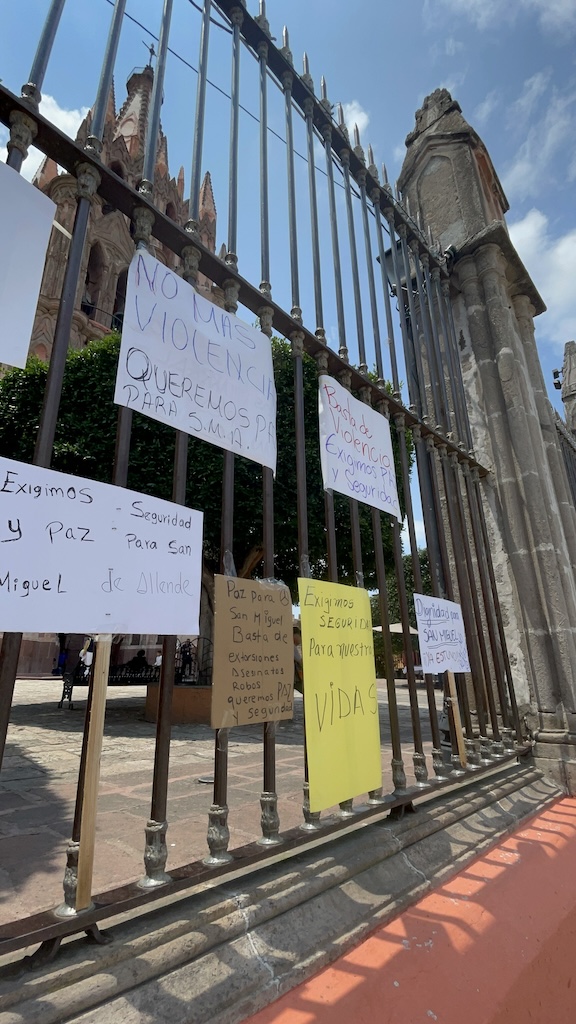 NO MAS
VIOLENCI
QUEREMOS
PARA S.M.A.
Basta de
Violencia
Exigimos
y Segurida
Exigimos Seguridad
y Paz Para San
Miguel de Allende
Paz para
San Miguel
Basta de
extorsiones
Asesinatos
Robos
queremos PAZ
y seguridad
Exigimos
SEGURIDA
Para nuestra
VIDAS
Dignidad por
SAN MIGUEL